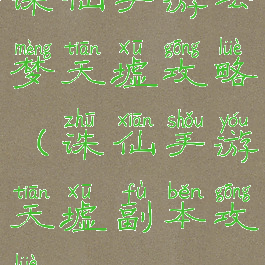 诛仙手游云
mèng tiān xū gōng lüè
梦天墟攻略
zhū xiān shǒu yóu
（诛仙手游
tiān xū fù běn gōng
天墟副本攻
lüè